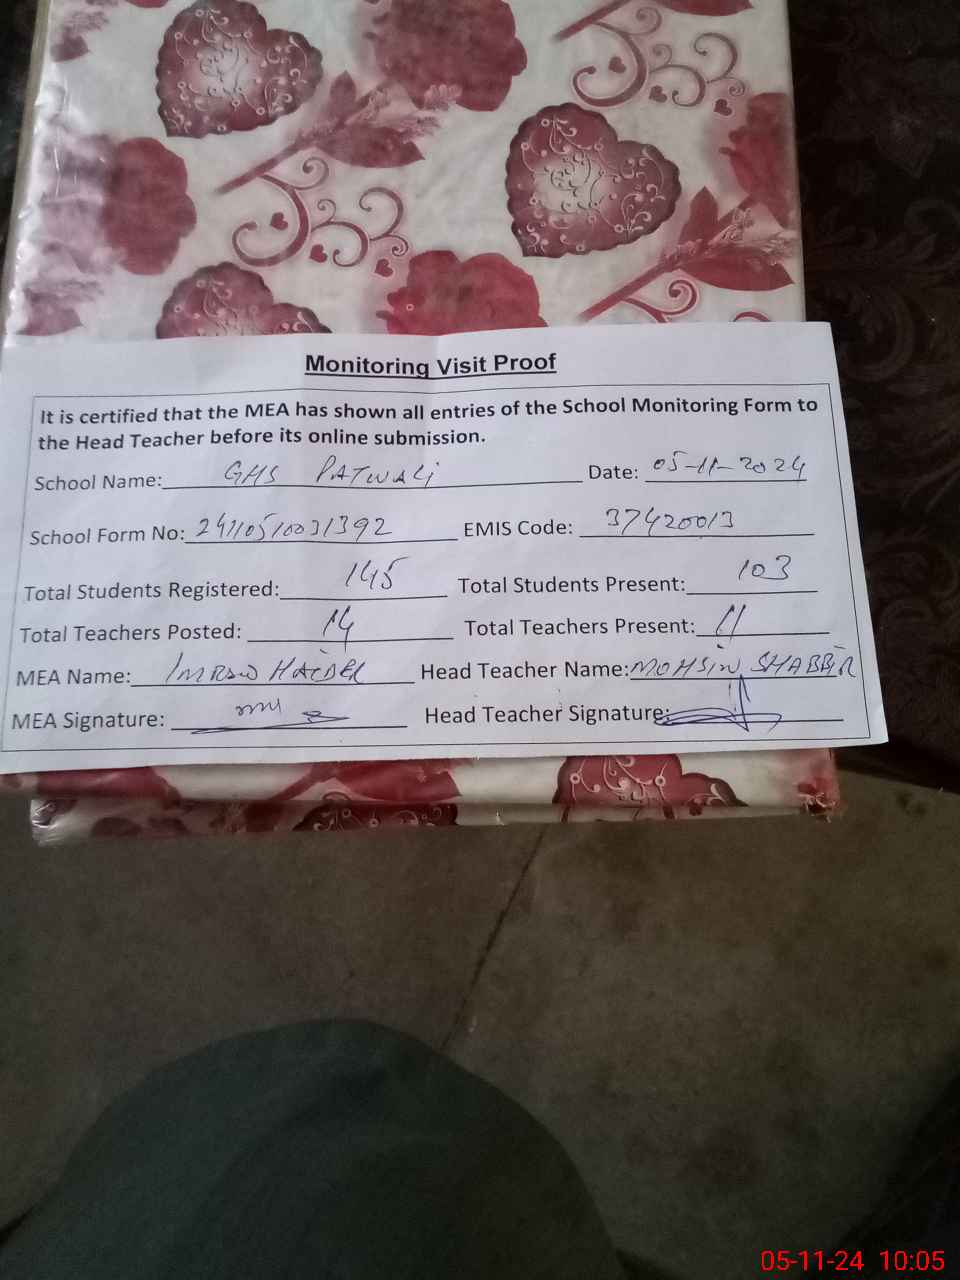 Monitoring Visit Proof
It is certified that the MEA has shown all entries of the School Monitoring Form to
the Head Teacher before its online submission.
School Name: GHS PATWALI Date: 05-11-2024
School Form No: 24110510031392 EMIS Code: 37420013
Total Students Registered: 145 Total Students Present: 103
Total Teachers Posted: 14 Total Teachers Present: 11
MEA Name: IMRAN HAIDER Head Teacher Name: MOHSIN SHABBIR
MEA Signature: Head Teacher Signature:
05-11-24 10:05